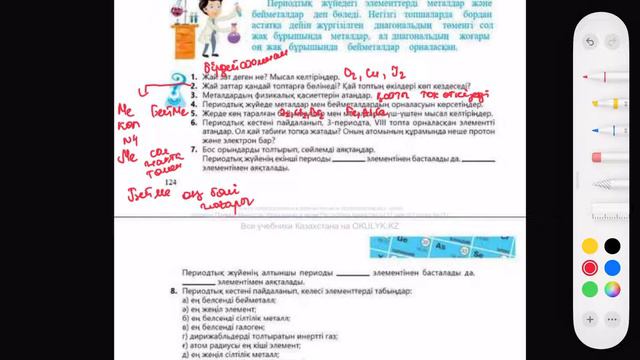 Периодтық жүйедегі элементтерді металдар және
бейметалдар деп бөледі. Негізгі топшаларда бордан
астатқа дейін жүргізілген диагональдың төменгі сол
жақ бұрышында металдар, ал диагональдың жоғары
оң жақ бұрышында бейметалдар орналасқан.
1. Жай зат деген не? Мысал келтіріңдер.
2. Жай заттар қандай топтарға бөлінеді? Қай топтың өкілдері көп кездеседі?
3. Металдардың физикалық қасиеттерін атаңдар.
4. Периодтық жүйеде металдар мен бейметалдардың орналасуын көрсетіңдер.
5. Жерде кең таралған мен мысал келтіріңдер.
6. Периодтық кестені пайдаланып, 3-периодта, VIII топта орналасқан элементті
атаңдар. Ол қай табиғи топқа жатады? Оның атомының құрамында неше протон
және электрон бар?
7. Бос орындарды толтырып, сөйлемді аяқтаңдар.
Периодтық жүйенің екінші периоды ________ элементінен басталады да, ________
элементімен аяқталады.
Ме Бейме
көп
Ме сол
жақта
төмен
Бейме оң
жоғары
124
Все учебники Казахстана на OKULYK.KZ
Ge As Se
Периодтық жүйенің алтыншы периоды ________ элементінен басталады да,
________ элементімен аяқталады.
8. Периодтық кестені пайдаланып, келесі элементтерді табыңдар:
а) ең белсенді бейметалл;
ә) ең жеңіл элемент;
б) ең белсенді сілтілік металл;
в) ең белсенді галоген;
г) дирижабльдерді толтыратын инертті газ;
ғ) атом радиусы ең кіші элемент;
д) ең жеңіл сілтілік металл;